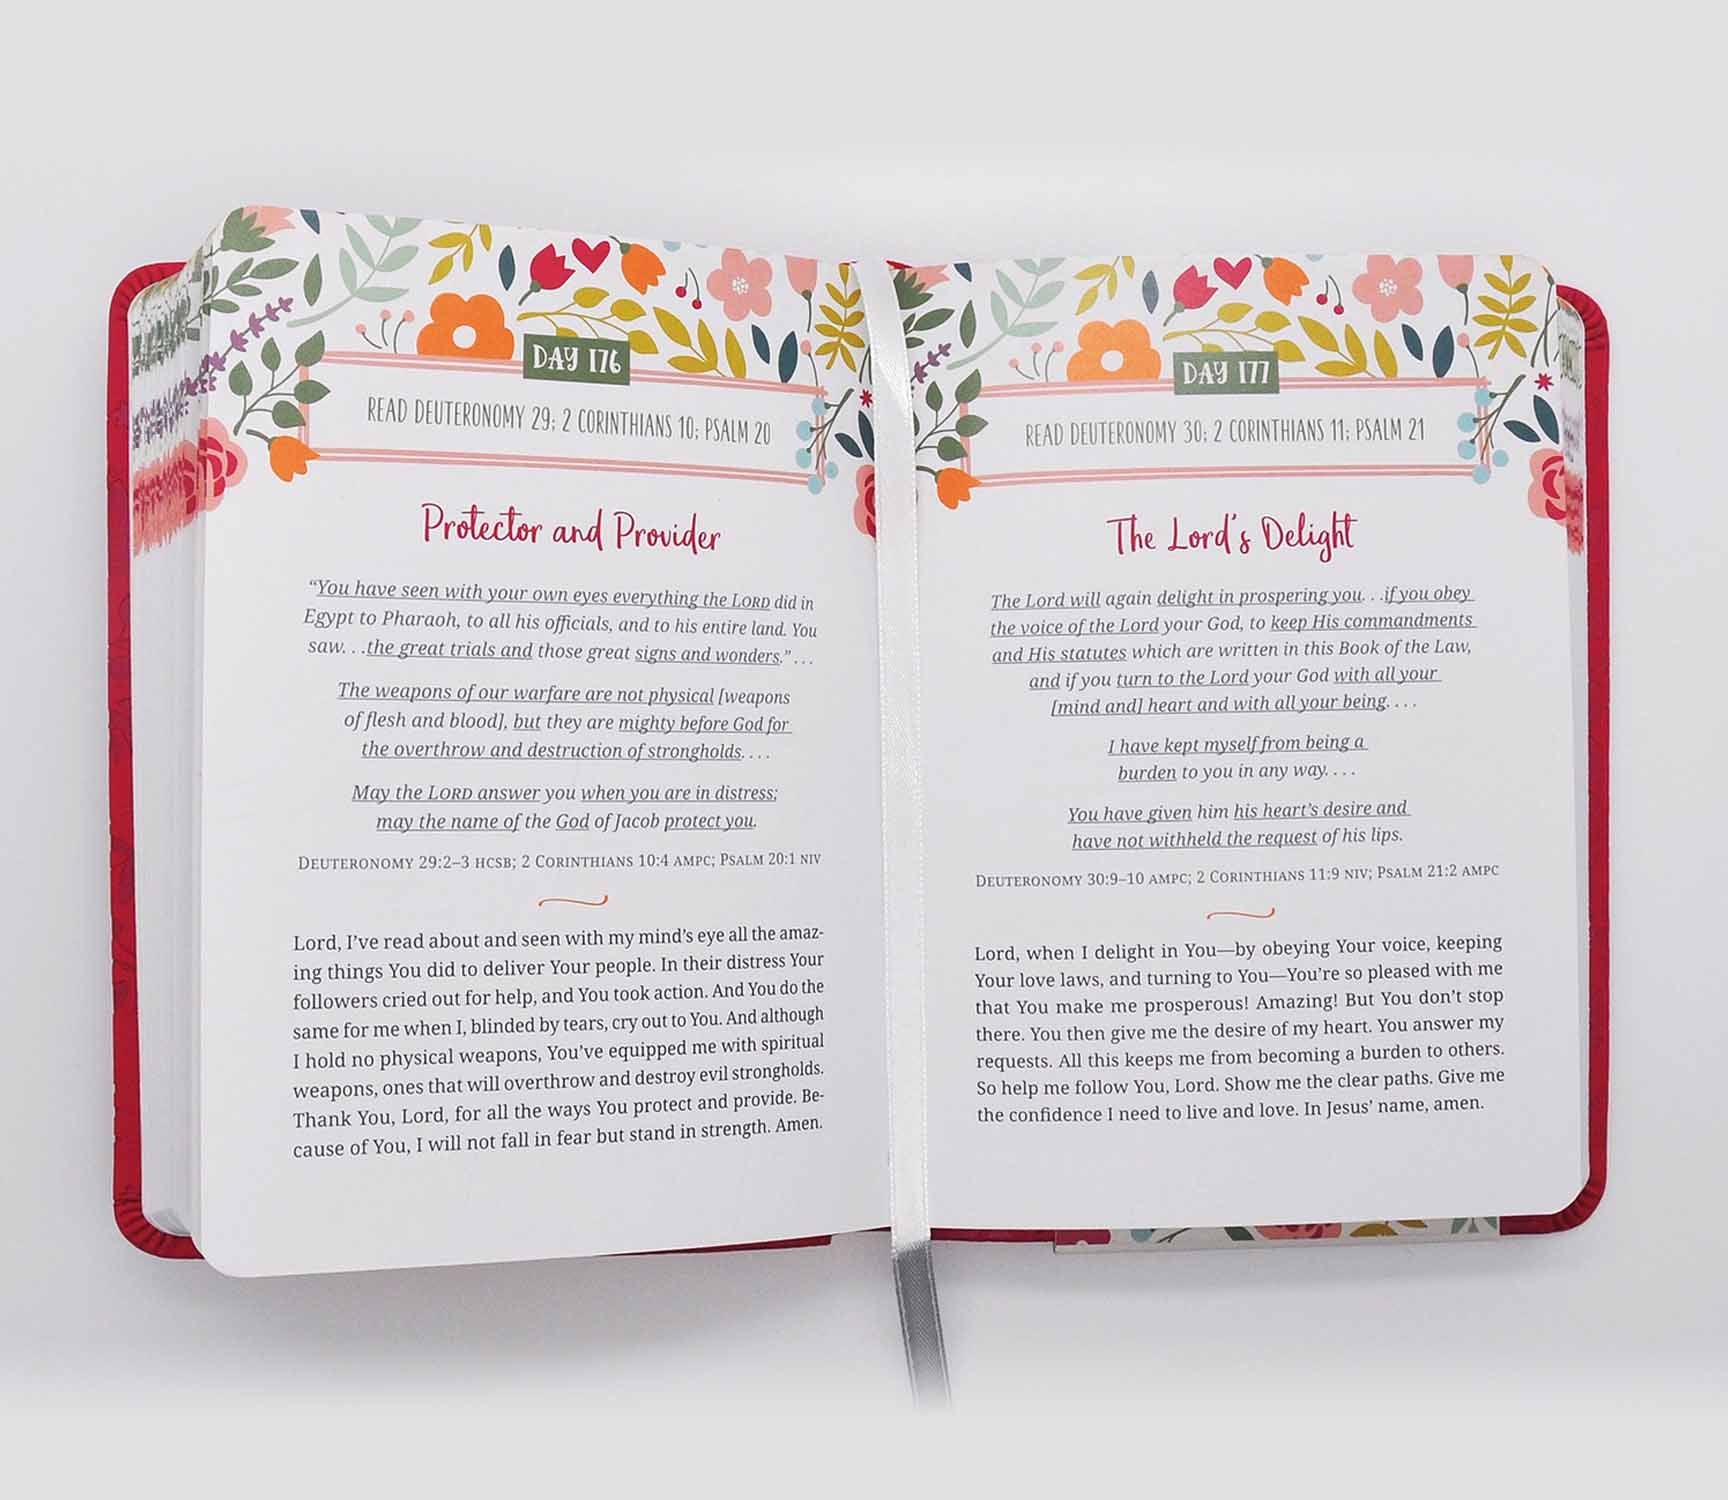 DAY 176
READ DEUTERONOMY 29; 2 CORINTHIANS 10; PSALM 20
Protector and Provider
“You have seen with your own eyes everything the LORD did in
Egypt to Pharaoh, to all his officials, and to his entire land. You
saw. . .the great trials and those great signs and wonders.” . . .
The weapons of our warfare are not physical [weapons
of flesh and blood], but they are mighty before God for
the overthrow and destruction of strongholds. . . .
May the LORD answer you when you are in distress;
may the name of the God of Jacob protect you.
DEUTERONOMY 29:2–3 HCSB; 2 CORINTHIANS 10:4 AMPC; PSALM 20:1 NIV
Lord, I’ve read about and seen with my mind’s eye all the amaz-
ing things You did to deliver Your people. In their distress Your
followers cried out for help, and You took action. And You do the
same for me when I, blinded by tears, cry out to You. And although
I hold no physical weapons, You’ve equipped me with spiritual
weapons, ones that will overthrow and destroy evil strongholds.
Thank You, Lord, for all the ways You protect and provide. Be-
cause of You, I will not fall in fear but stand in strength. Amen.
DAY 177
READ DEUTERONOMY 30; 2 CORINTHIANS 11; PSALM 21
The Lord’s Delight
The Lord will again delight in prospering you. . .if you obey
the voice of the Lord your God, to keep His commandments
and His statutes which are written in this Book of the Law,
and if you turn to the Lord your God with all your
[mind and] heart and with all your being. . . .
I have kept myself from being a
burden to you in any way. . . .
You have given him his heart’s desire and
have not withheld the request of his lips.
DEUTERONOMY 30:9–10 AMPC; 2 CORINTHIANS 11:9 NIV; PSALM 21:2 AMPC
Lord, when I delight in You—by obeying Your voice, keeping
Your love laws, and turning to You—You’re so pleased with me
that You make me prosperous! Amazing! But You don’t stop
there. You then give me the desire of my heart. You answer my
requests. All this keeps me from becoming a burden to others.
So help me follow You, Lord. Show me the clear paths. Give me
the confidence I need to live and love. In Jesus’ name, amen.